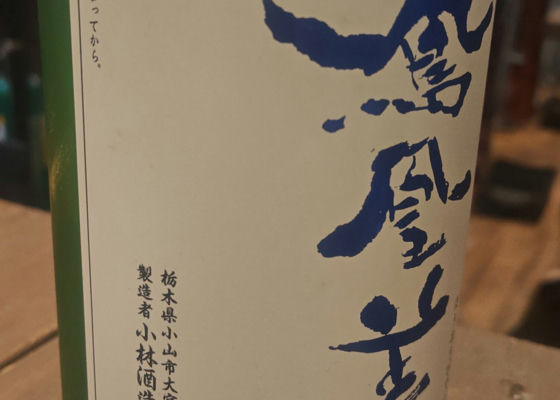 鳳凰美
栃木県小山市大字
製造者 小林酒造
ってから。